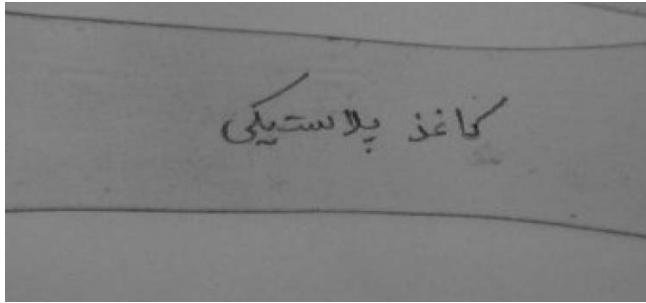 کاغذ پلاستیکی